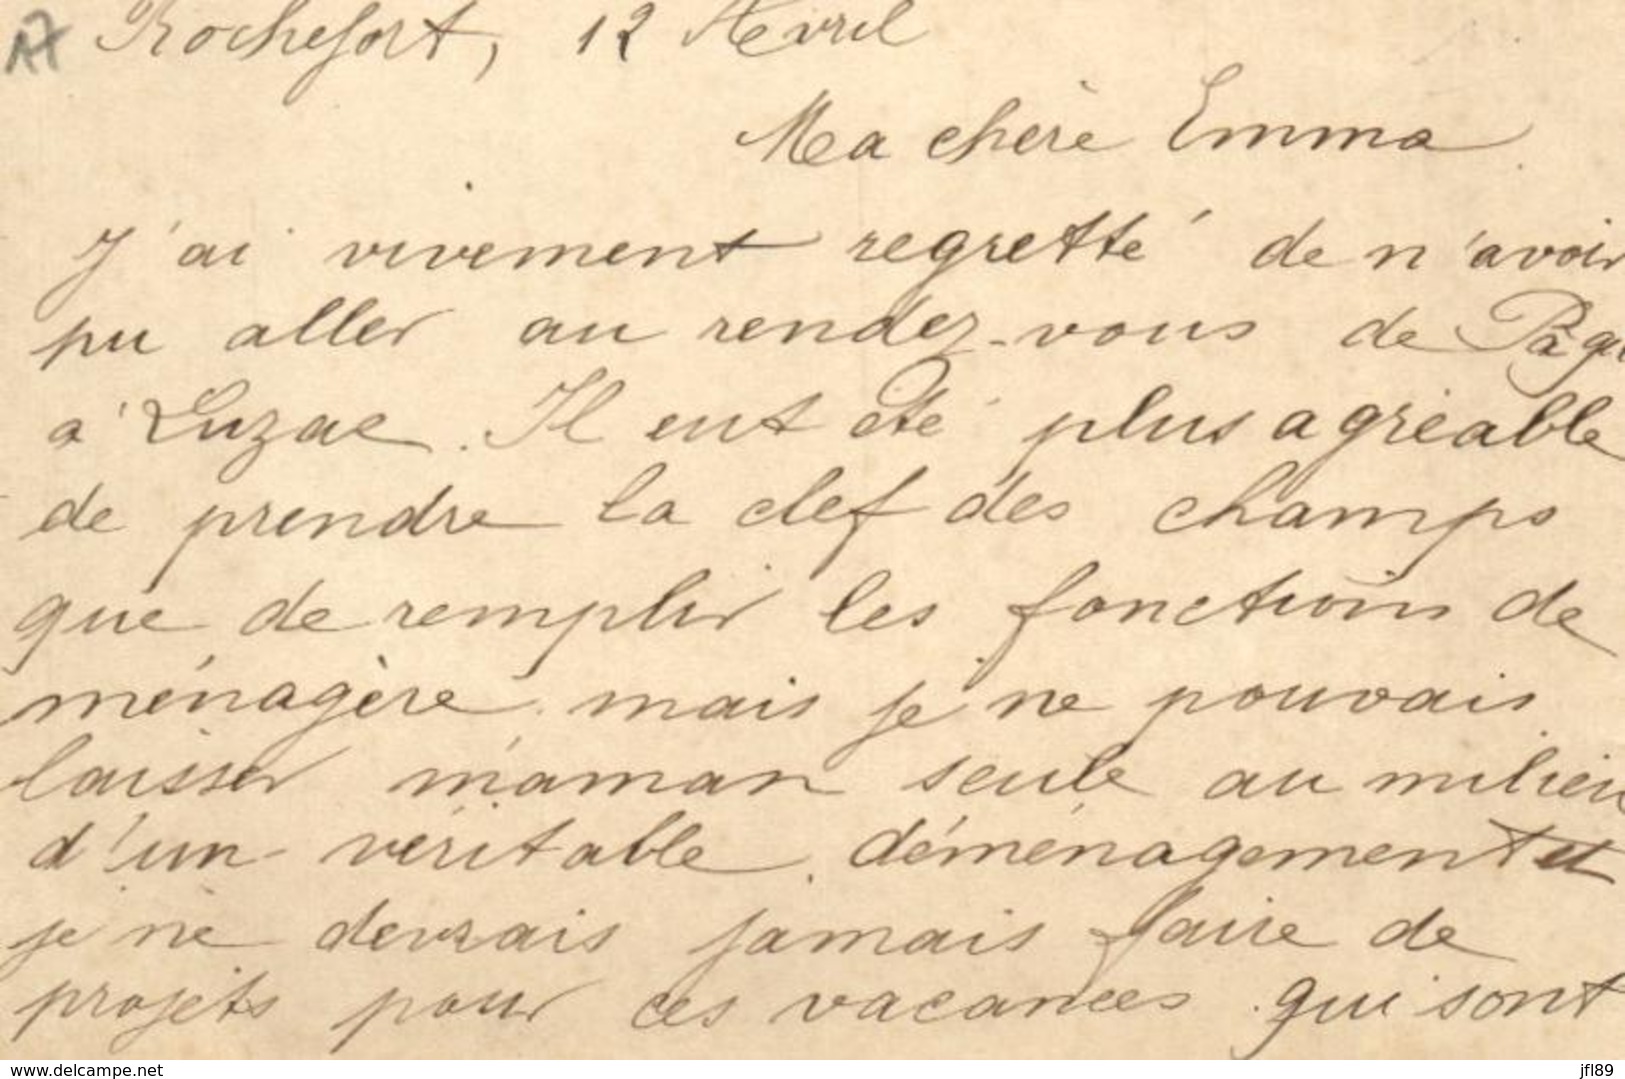 A7 Rochefort, 12 Avril
Ma chère Emma
J'ai vivement regretté de n'avoir
pu aller au rendez-vous de
à Luzac. Il eut été plus agréable
de prendre la clef des champs
que de remplir les fonctions de
ménagère mais je ne pouvais
laisser maman seule au milieu
d'un véritable déménagement et
je ne devrais jamais faire de
projets pour ces vacances qui sont
www.delcampe.net
jfl89